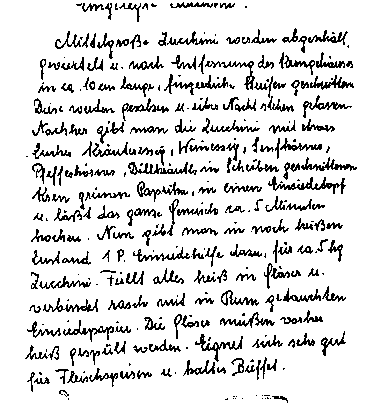 Eingelegte Zucchini.
Mittelgroße Zucchini werden abgeschält,
geviertelt u. nach Entfernung des Kerngehäuses
in ca. 10 cm lange, fingerdicke Streifen geschnitten.
Diese werden gesalzen u. über Nacht stehen gelassen.
Nachher gibt man die Zucchini mit etwas
Zucker, Kräuteressig, Weinessig, Senfkörner,
Pfefferkörner, Dillkraut, in Scheiben geschnittenen
Kren, grünen Paprika, in einen Einsiedetopf
u. läßt das ganze Gemisch ca. 5 Minuten
kochen. Nun gibt man in noch heißen
Zustand 1 P. Einsiedehilfe dazu, für ca. 5 kg
Zucchini. Füllt alles heiß in Gläser u.
verbindet rasch mit in Rum getauchten
Einsiedepapier. Die Gläser müßen vorher
heiß gespült werden. Eignet sich sehr gut
für Fleischspeisen u. kaltes Büffet.